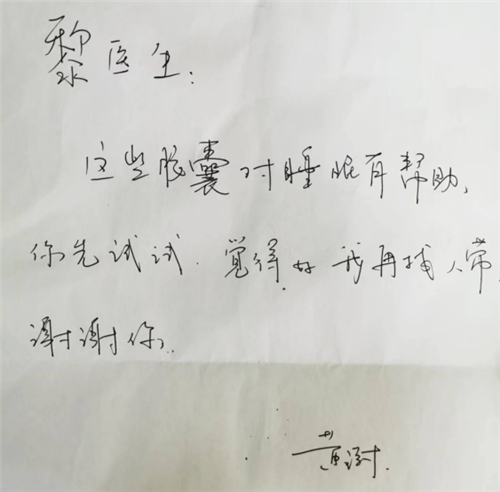 黎医生:
这些胶囊对睡眠有帮助,
你先试试. 觉得好我再捕人带
谢谢你.
黄澍.